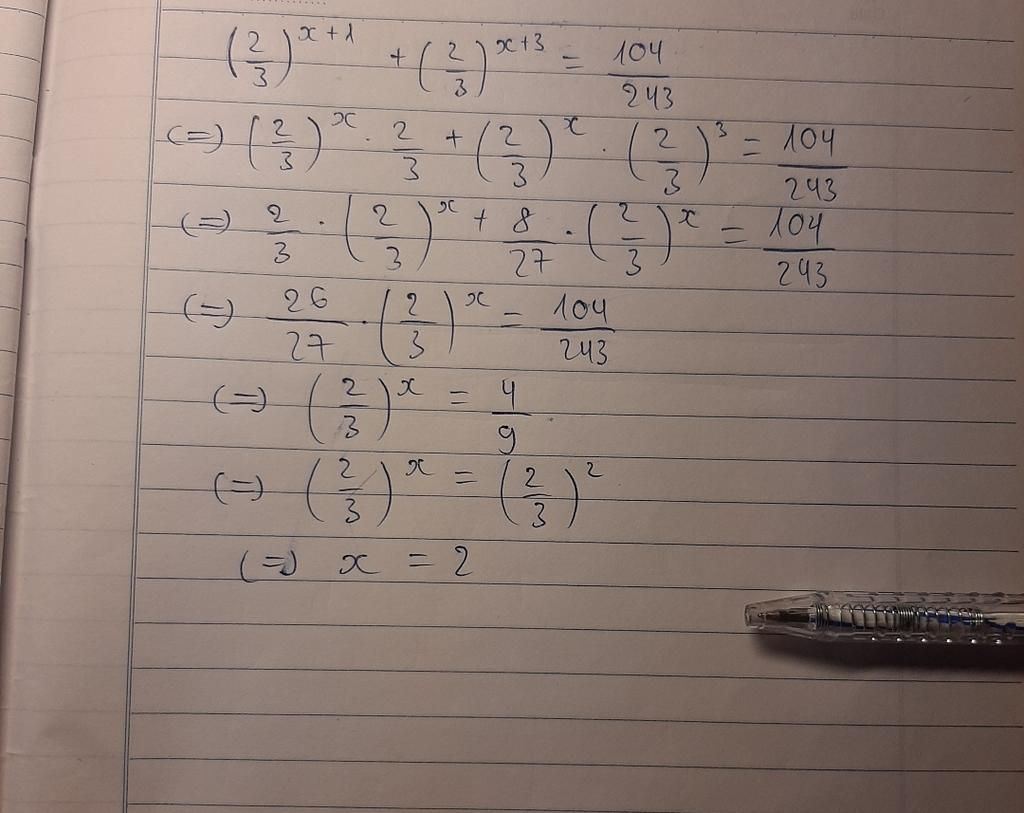 (2/3)^(x+1) + (2/3)^(x+3) = 104/243
(=) (2/3)^x . 2/3 + (2/3)^x . (2/3)^3 = 104/243
(=) 2/3 . (2/3)^x + 8/27 . (2/3)^x = 104/243
(=) 26/27 . (2/3)^x = 104/243
(=) (2/3)^x = 4/9
(=) (2/3)^x = (2/3)^2
(=) x = 2